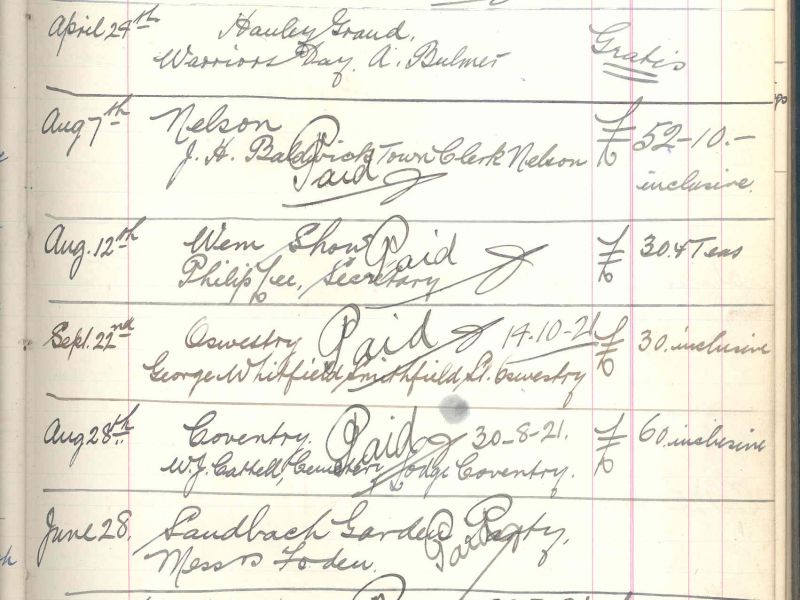 April 24th Hanley Grand.
Warriors Day. A. Bulmer Gratis
Aug 7th Nelson £ 52-10.-
J. H. Baldwick Town Clerk Nelson inclusive.
Paid
Aug. 12th Wem Show Paid £ 30 & Teas
Philip Lee, Secretary
Sept. 22nd Oswestry Paid 14-10-21 £ 30 inclusive
George Whitfield, Smithfield St. Oswestry
Aug 28th Coventry. Paid 30-8-21. £ 60 inclusive
W. J. Cattell, Cemetery Lodge Coventry.
June 28. Sandbach Garden Party,
Messrs Foden. Paid